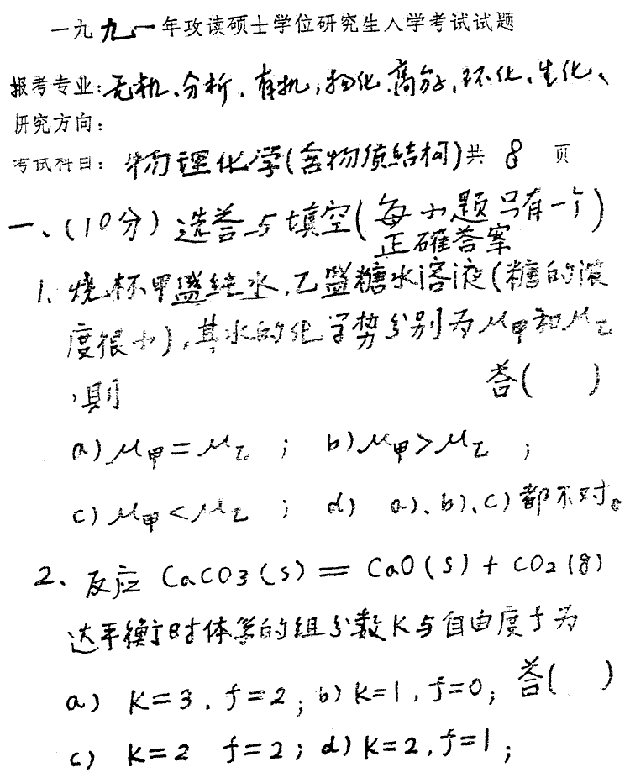 一九九一年攻读硕士学位研究生入学考试试题
报考专业:无机、分析、有机、物化、高分、环化、生化、
研究方向:
考试科目: 物理化学(含物质结构)共 8 页
一、(10分) 选答与填空(每小题只有一个
正确答案)
1. 烧杯甲盛纯水,乙盛糖水溶液(糖的浓
度很小),其水的化学势分别为μ甲和μ乙
,则 答( )
a) μ甲=μ乙 ; b) μ甲>μ乙 ;
c) μ甲<μ乙 ; d) a)、b)、c)都不对。
2、反应 CaCO3(s) = CaO(s) + CO2(g)
达平衡时体系的组分数K与自由度f为
a) K=3, f=2; b) K=1, f=0; 答( )
c) K=2 f=2; d) K=2, f=1;